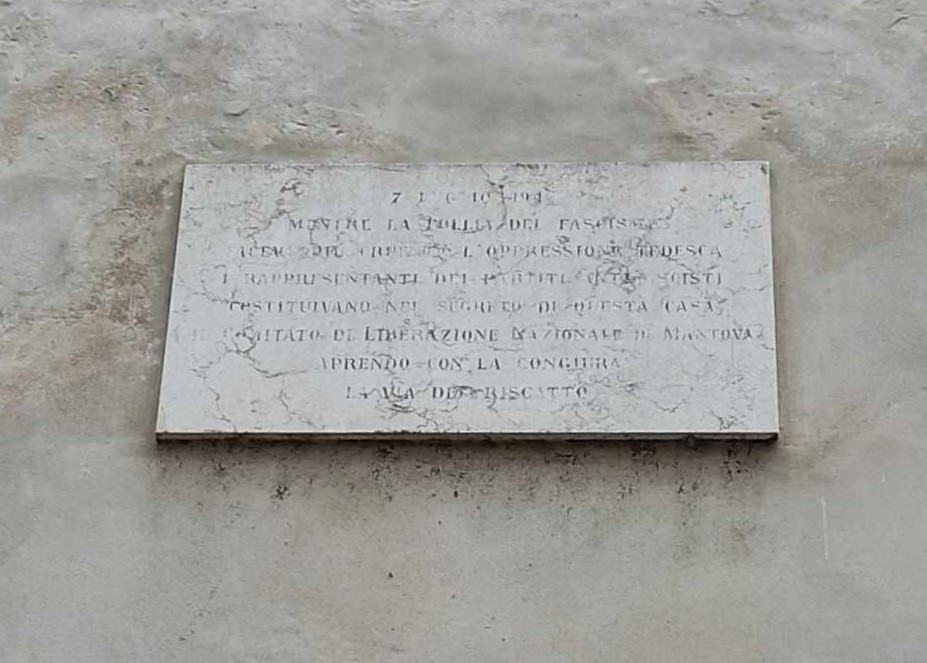 7
MENTRE LA FOLLIA DEL FASCISMO
FACEVA PIU L'OPPRESSIONE TEDESCA
I RAPPRESENTANTI DEI PARTITI ANTIFASCISTI
COSTITUIVANO NEL SEGRETO DI QUESTA CASA
IL COMITATO DI LIBERAZIONE NAZIONALE DI MANTOVA
APRENDO CON LA CONGIURA
LA VIA DEL RISCATTO